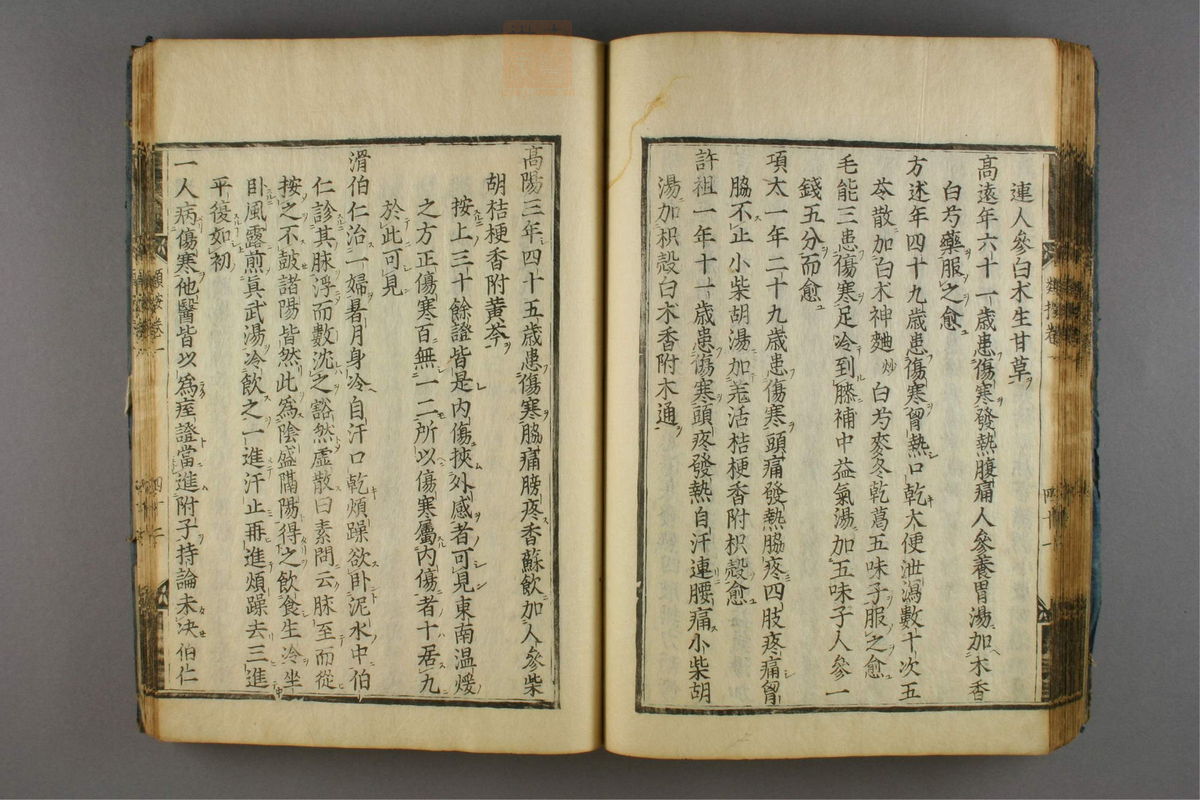 連人參白朮生甘草
高遠年六十一歲患傷寒發熱腹痛人參養胃湯加木香
白芍藥服之愈
方述年四十九歲患傷寒曾熱口乾大便泄瀉數十次五
苓散加白朮神麯炒白芍麥冬乾葛五味子服之愈
毛能三患傷寒足冷到膝補中益氣湯加五味子人參一
錢五分而愈
項太一年二十九歲患傷寒頭痛發熱脇疼四肢疼痛曾
脇不止小柴胡湯加羌活桔梗香附枳殼愈
許祖一年十一歲患傷寒頭疼發熱自汗連腰痛小柴胡
湯加枳殼白朮香附木通
高陽三年四十五歲患傷寒脇痛膀疼香蘇飲加人參柴
胡桔梗香附黄芩
按上三十餘證皆是内傷挾外感者可見東南温煖
之方正傷寒百無一二所以傷寒屬内傷者十居九
於此可見
滑伯仁治一婦暑月身冷自汗口乾煩躁欲卧泥水中伯
仁診其脉浮而數沈之豁然虚散曰素問云脉至而從
按之不皷諸陽皆然此爲陰盛隔陽得之飲食生冷坐
卧風露煎眞武湯冷飲之一進汗止再進煩躁去三進
平復如初
一人病傷寒他醫皆以爲痓證當進附子持論未决伯仁